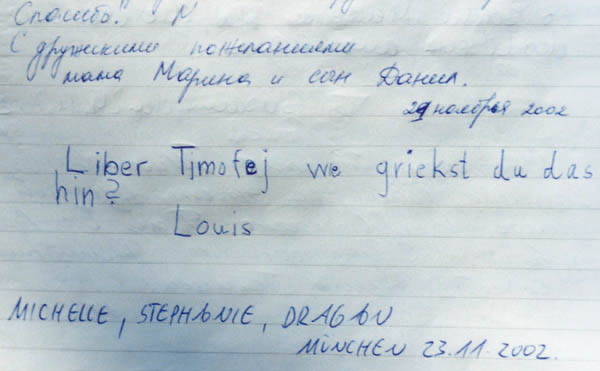 Спасибо. N
С дружескими пожеланиями
мама Марина и сын Данил.
29 ноября 2002
Liber Timofej we griekst du das
hin?
Louis
MICHELLE, STEPHANIE, DRAGAN
MÜNCHEN 23.11.2002.